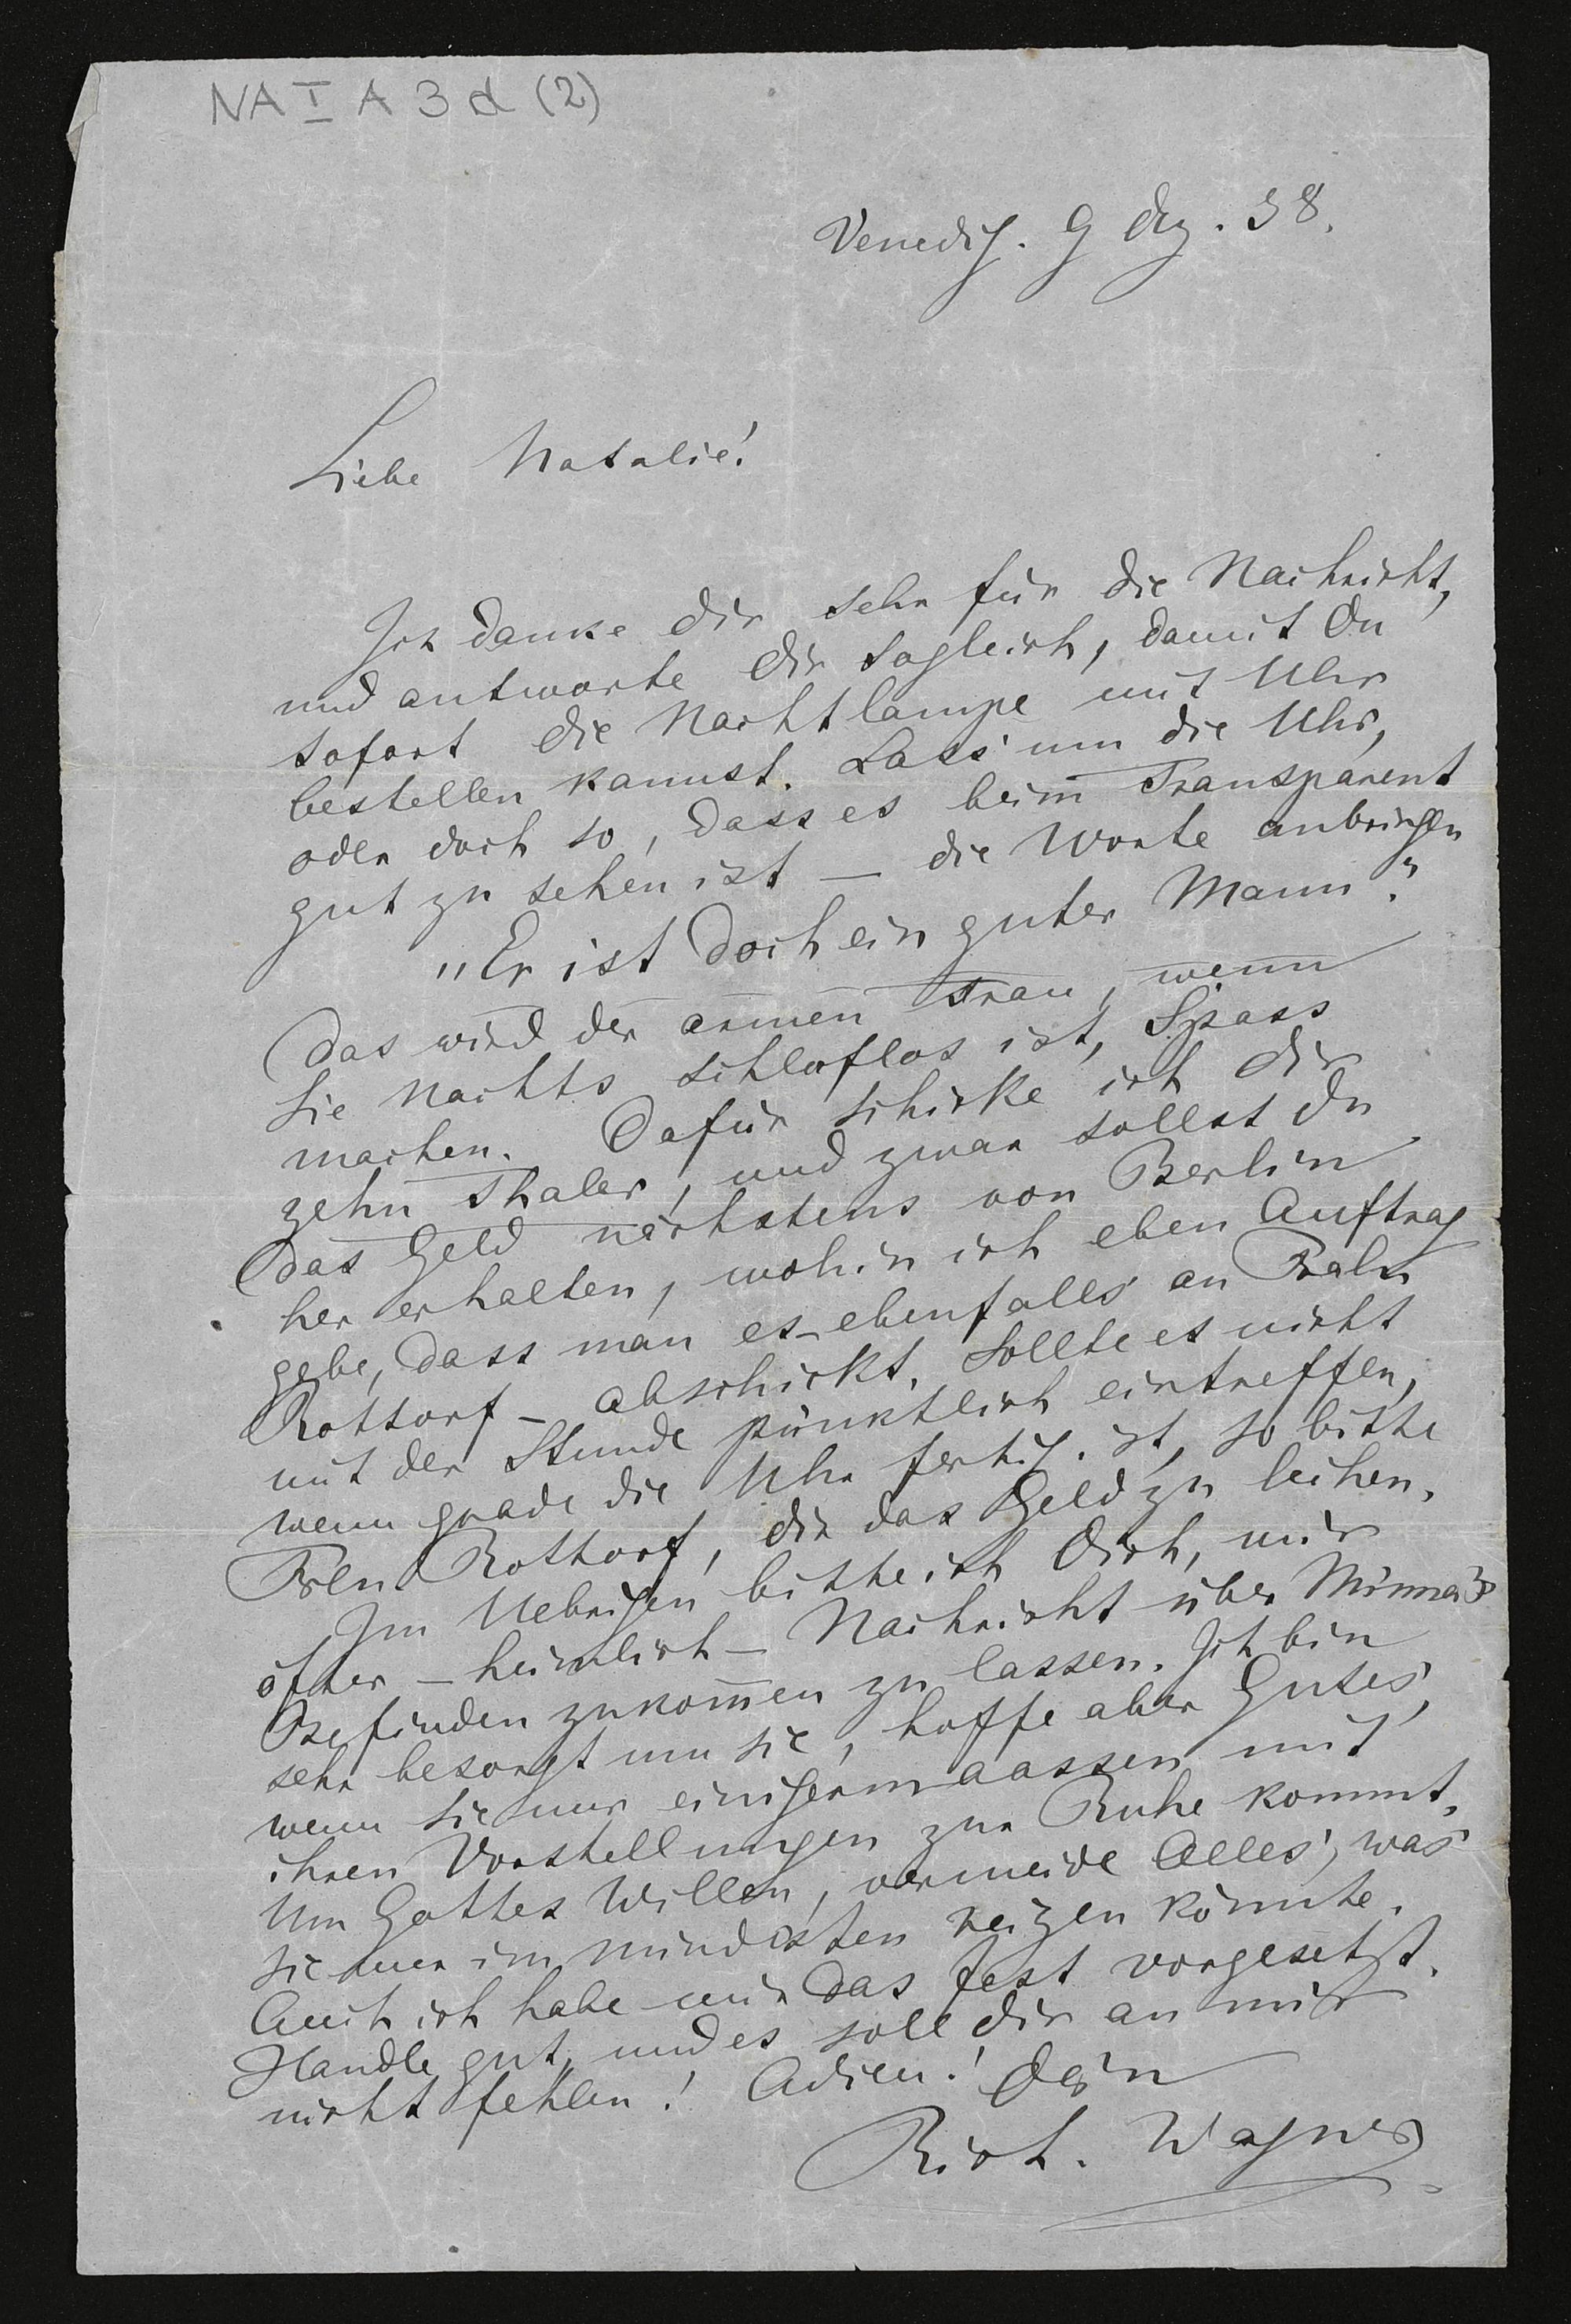 NA I A 3 d (2)
Venedig. 9 Dez. 58.
Liebe Natalie!
Ich danke Dir sehr für die Nachricht,
und antworte Dir sogleich, damit Du
sofort die Nachtlampe mit Uhr
bestellen kannst. Lass' um die Uhr,
oder doch so, dass es beim Transparent
gut zu sehen ist — die Worte anbringen
„Er ist doch ein guter Mann".
Das wird der armen Frau, wenn
sie Nachts schlaflos ist, Spass
machen. Dafür schicke ich Dir
zehn Thaler, und zwar sollst Du
das Geld nächstens von Berlin
her erhalten, wohin ich eben Auftrag
gebe, dass man es – ebenfalls an
Rottorf – abschickt. Sollte es nicht
mit der Stunde pünktlich eintreffen,
wenn grade die Uhr fertig ist, so bitte
Frln Rottorf, Dir das Geld zu leihen.
Im Uebrigen bitte ich Dich, mir
öfter – heimlich – Nachricht über Minna's
Befinden zukom̅en zu lassen. Ich bin
sehr besorgt um sie, hoffe aber Gutes,
wenn sie nur einigermaassen mit
ihren Vorstellungen zur Ruhe kommt.
Um Gottes Willen, vermeide Alles, was
sie nur im mindesten reizen könnte.
Auch ich habe mir das fest vorgesetzt.
Handle gut, und es soll Dir an mir
nicht fehlen! Adieu! Dein
Rich. Wagner